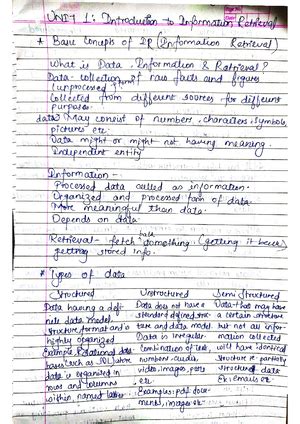 UNIT 1: Introduction to Information Retrieval
* Basic Concepts of IR (Information Retrieval)
What is Data, Information & Retrieval?
Data- collection of raw facts and figures
(unprocessed) form
Collected from different sources for different
purposes.
data May consist of numbers, characters, symbols,
pictures etc.
Data might or might not having meaning.
Independent entity
Information -
Processed data called as information.
Organized and processed form of data.
More meaningful than data.
Depends on data.
Retrieval- fetch something (getting it back)
getting stored info.
* Types of data
Structured Unstructured Semi Structured
Data having a defi- Data does not have a Data that may have
nite data model. standard defined struc- a certain structure
structure, format and is ture and data model but not all infor-
highly organized Data is irregular mation collected
Example Relational data Combination of text, will have identical
bases such as SQL where numbers, audio, structure
data is organized in video, images, etc structured data
rows and columns Ex: emails etc
within named tables. Examples: pdf docu-
ments, images etc